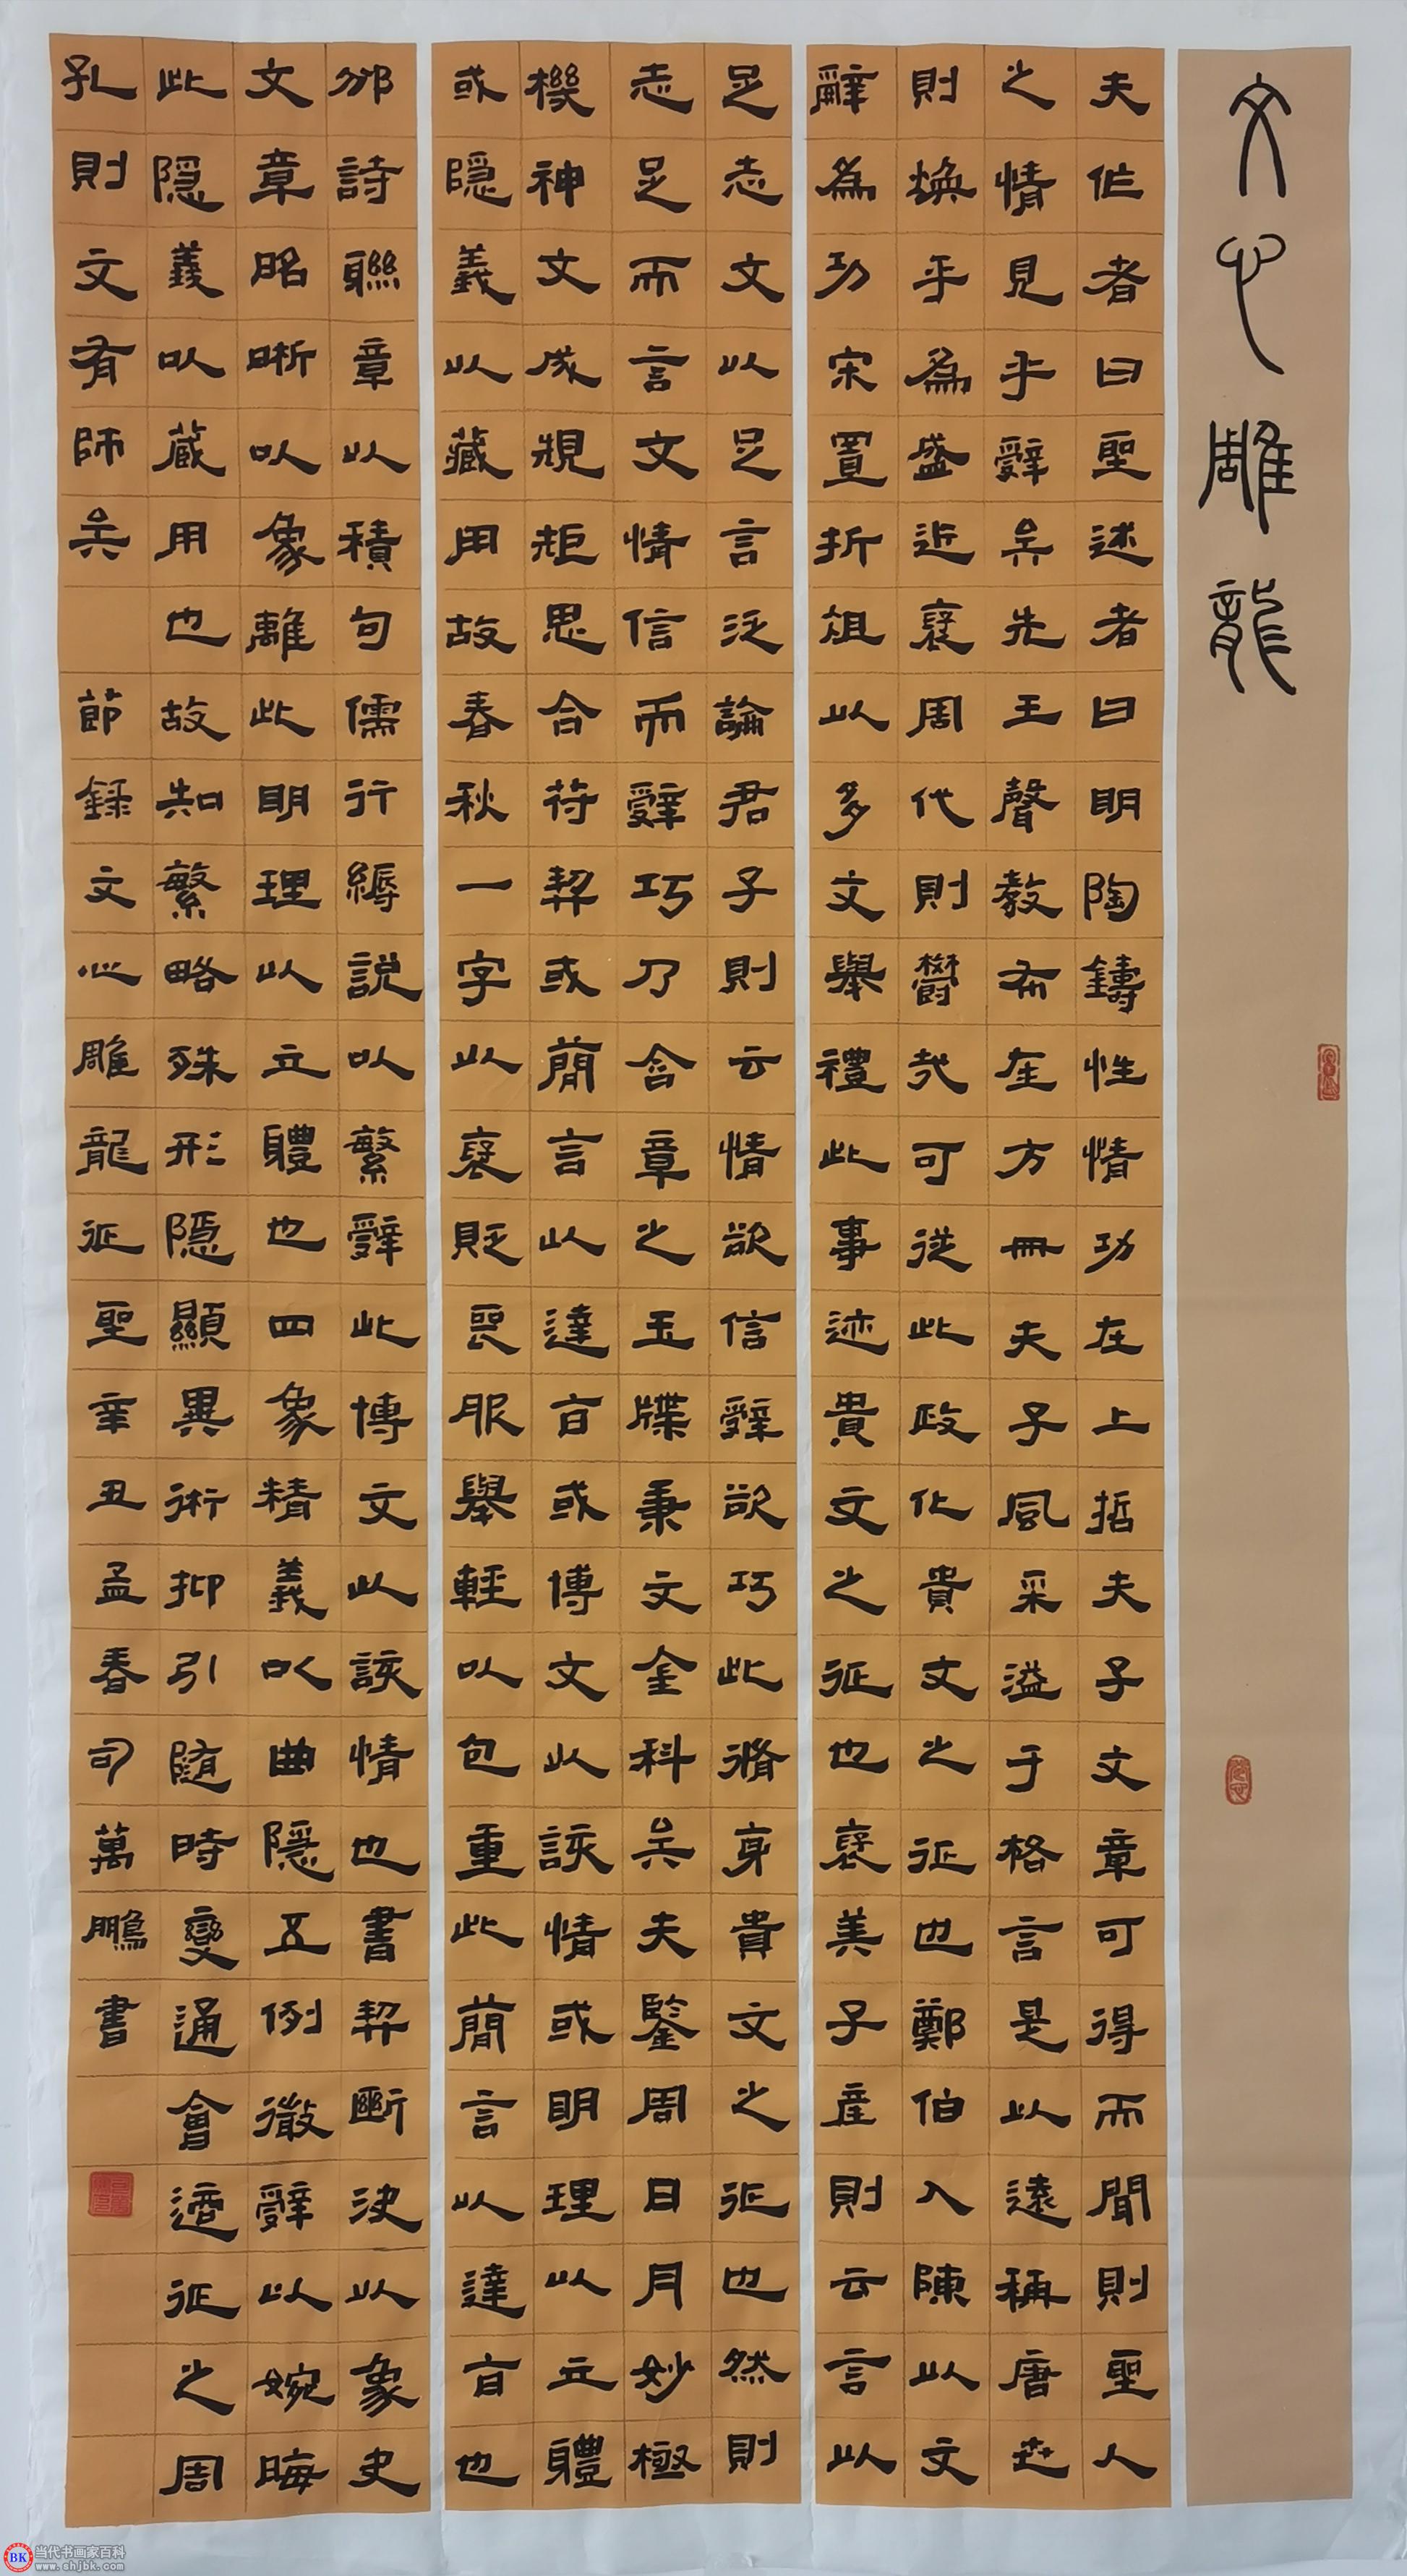 文心雕龍
夫作者曰聖述者曰明陶鑄性情功在上哲夫子文章可得而聞則聖人
之情見乎辭矣先王聲教布在方冊夫子風采溢于格言是以遠稱唐世
則煥乎為盛近褒周代則鬱哉可從此政化貴文之征也鄭伯入陳以文
辭為功宋置折俎以多文舉禮此事迹貴文之征也褒美子產則云言以
足志文以足言泛論君子則云情欲信辭欲巧此脩身貴文之征也然則
志足而言文情信而辭巧乃含章之玉牒秉文金科矣夫鑒周日月妙極
機神文成規矩思合符契或簡言以達旨或博文以該情或明理以立體
或隱義以藏用故春秋一字以褒貶喪服舉輕以包重此簡言以達旨也
邠詩聯章以積句儒行縟說以繁辭此博文以該情也書契斷決以象史
文章昭晰以象離此明理以立體也四象精義以曲隱五例微辭以婉晦
此隱義以藏用也故知繁略殊形隱顯異術抑引隨時變通會適征之周
孔則文有師矣 節錄文心雕龍征聖章丑孟春司萬鵬書
BK 当代书画家百科
www.shjbk.com